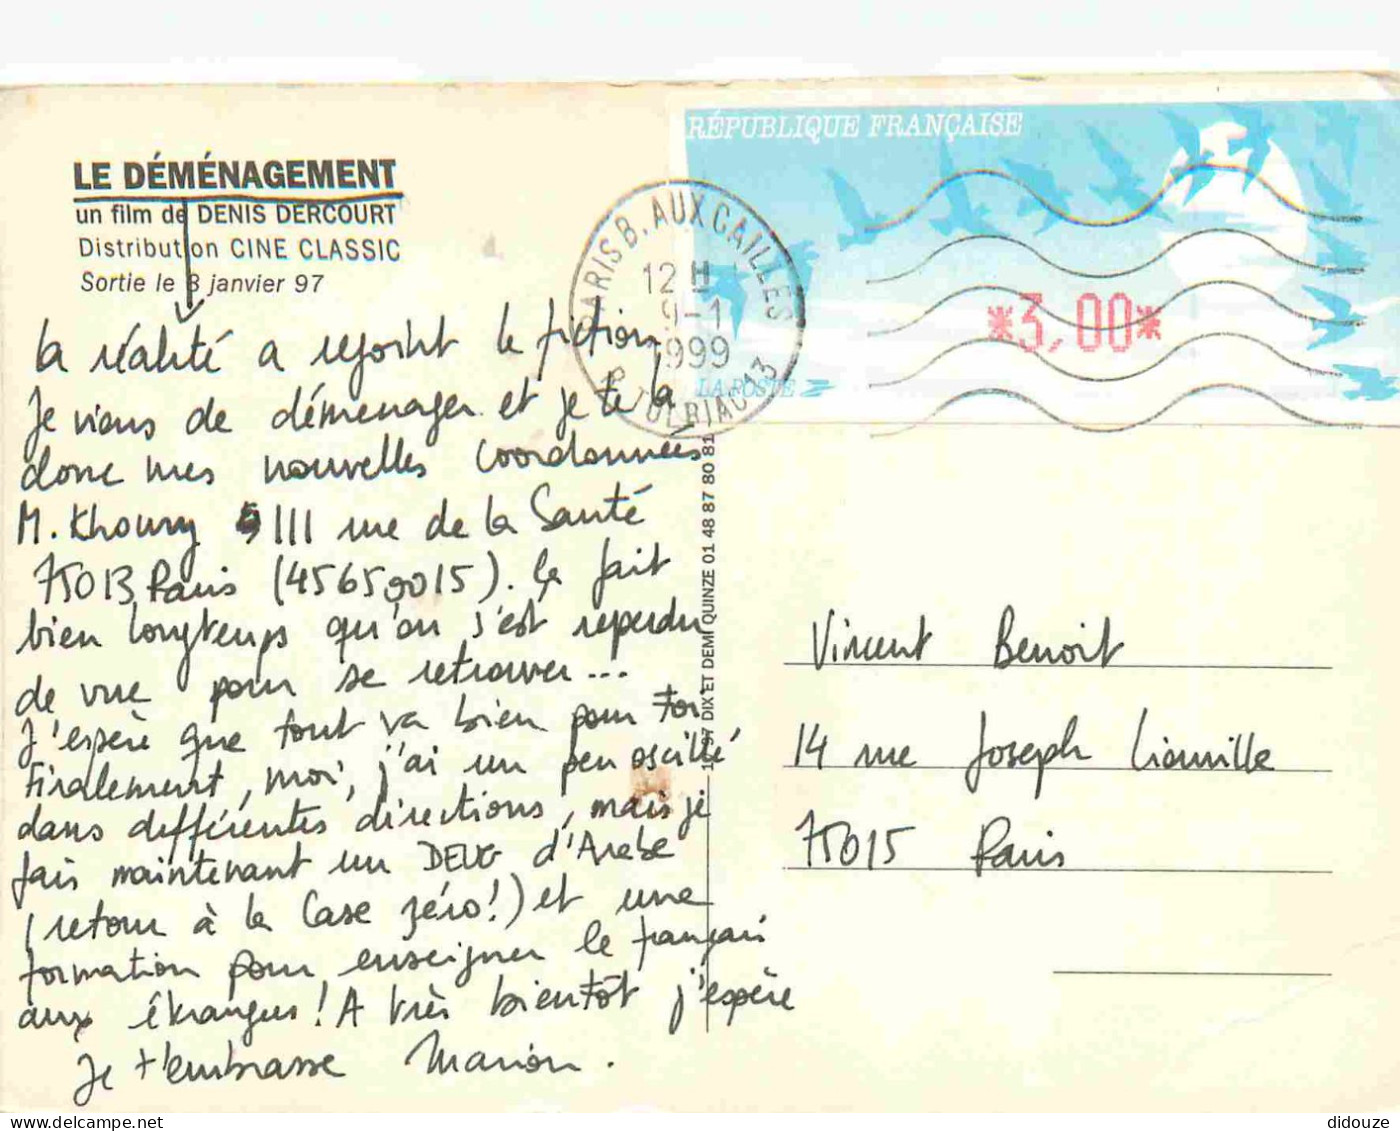 LE DÉMÉNAGEMENT
un film de DENIS DERCOURT
Distribution CINE CLASSIC
Sortie le 8 janvier 97
la réalité a rejoint la fiction
Je viens de déménager et je te la
donc mes nouvelles coordonnées
M. Khoury 111 rue de la Santé
75013 Paris (45659015). Ça fait
bien longtemps qu'on s'est reperdu
de vue pour se retrouver...
J'espère que tout va bien pour toi
Finalement, moi, j'ai un peu oscillé
dans différentes directions, mais je
fais maintenant un DEUG d'Arabe
(retour à la case zéro!) et une
formation pour enseigner le français
aux étrangers! A très bientôt j'espère
Je t'embrasse Marion.
RÉPUBLIQUE FRANÇAISE
*3,00*
LA POSTE
PARIS B. AUX CAILLES
12 H
9-1
1999
DIX ET DEMI QUINZE 01 48 87 80 81
Vincent Benoit
14 rue Joseph Liouville
75015 Paris
didouze